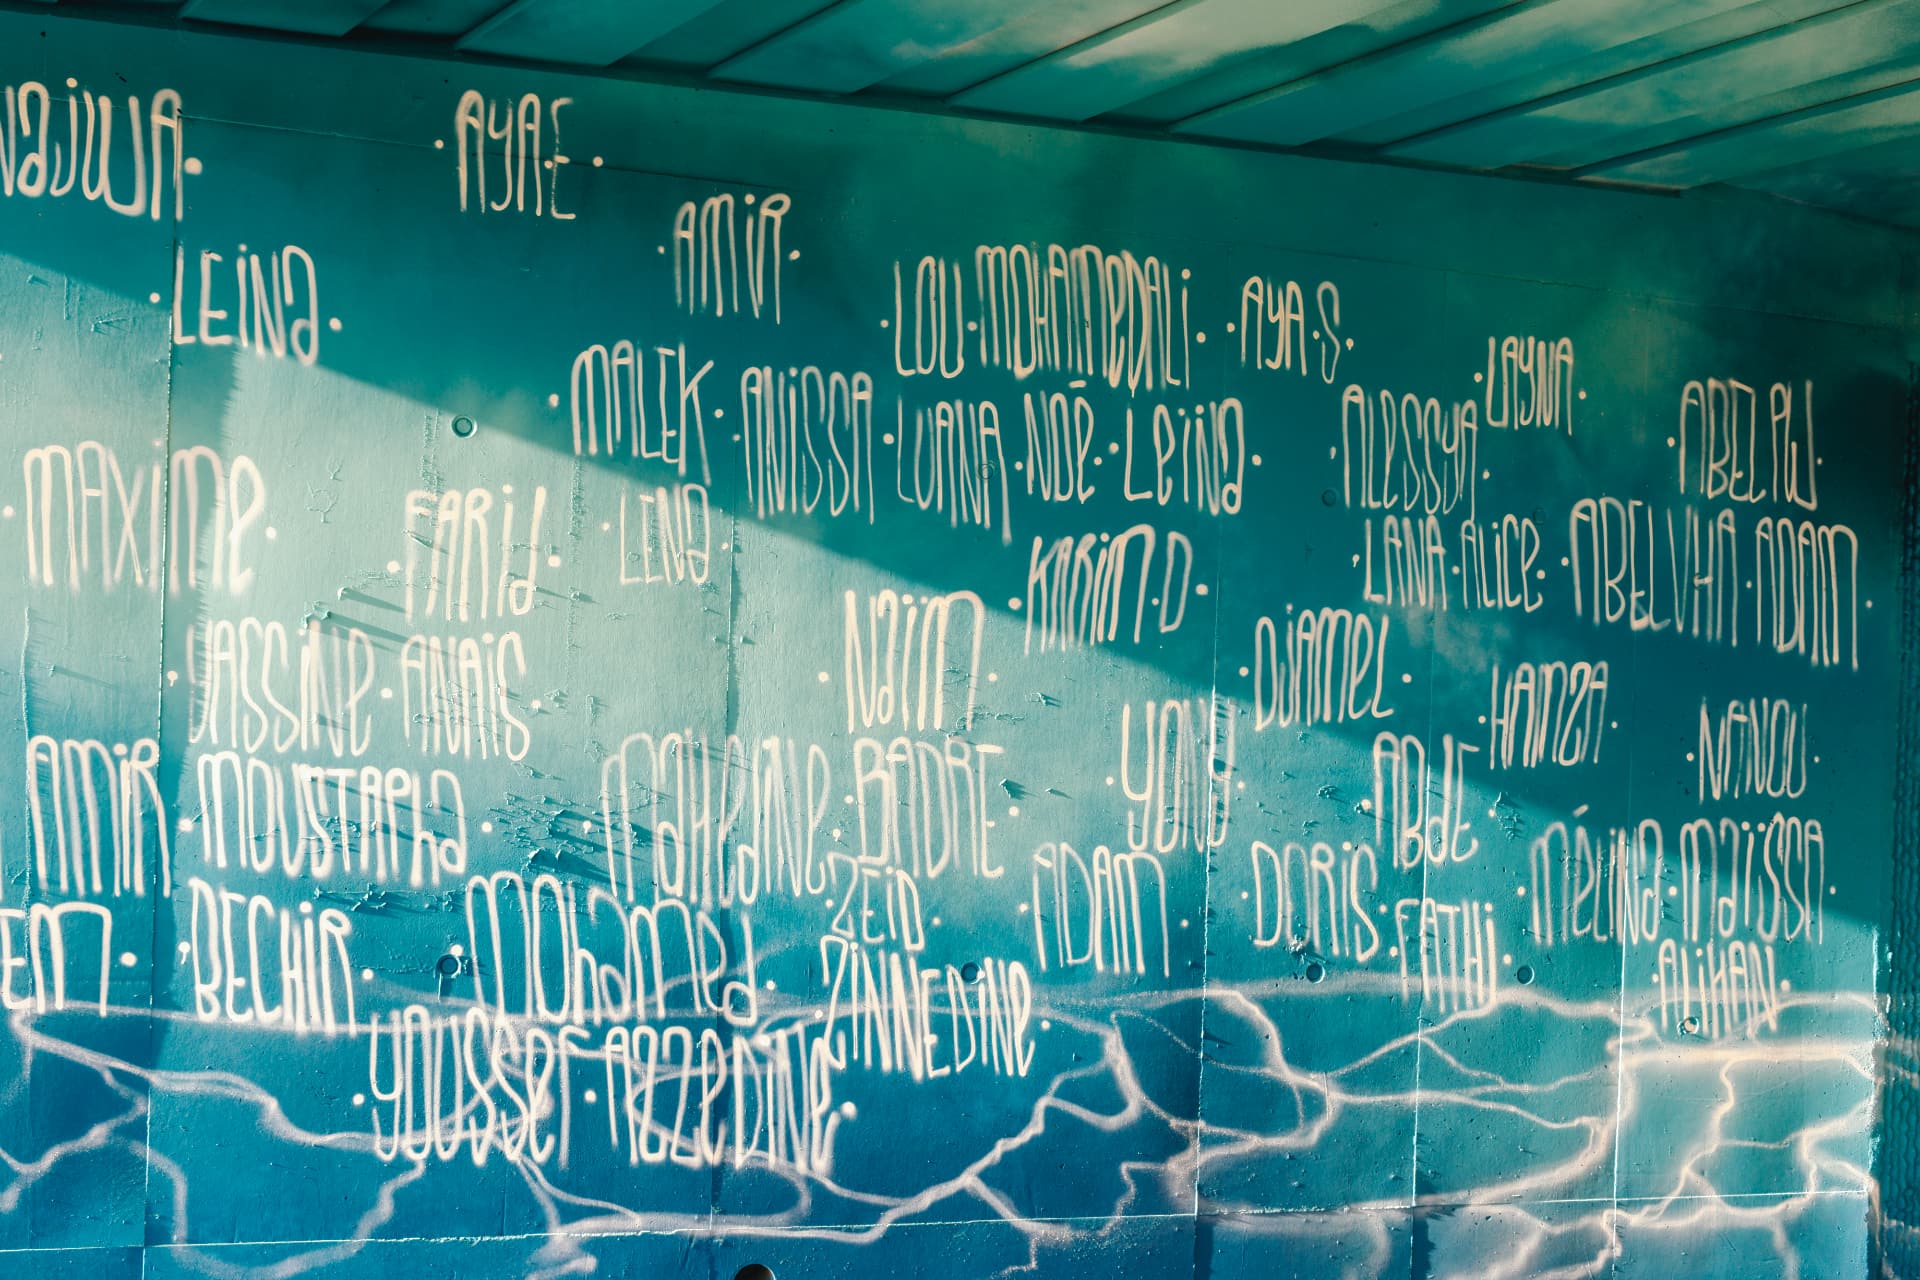 NaJWA·
·AYAE·
·AMiR·
·LEiNa·
·LOU·MOHAMeDALi·
·AYA·S·
·LAYNA·
·MALEK·
·ANiSSA·LUANA·NOÉ·LeiNa·
·ALeSSYA·
·MAXiMe·
·FARid·
·LENa·
·KARiM·D·
·LANA·ALiCe·
·ABELVHA·ADAM·
·YASSiNe·ANAiS·
·NaïM·
·DJAMeL·
·HAMZA·
·NANOU·
AMiR·MOUSTAPha·
·BADRE·
·ADAM·
·DORiS·FATHi·
·MÉLiNa·MaïSSA·
EM·
·BECHiR·
·MOhaMed·
ZEiD·
ZiNNEDiNe·
·ALiHAN·
·YOUSSeF·AZZeDiNe·